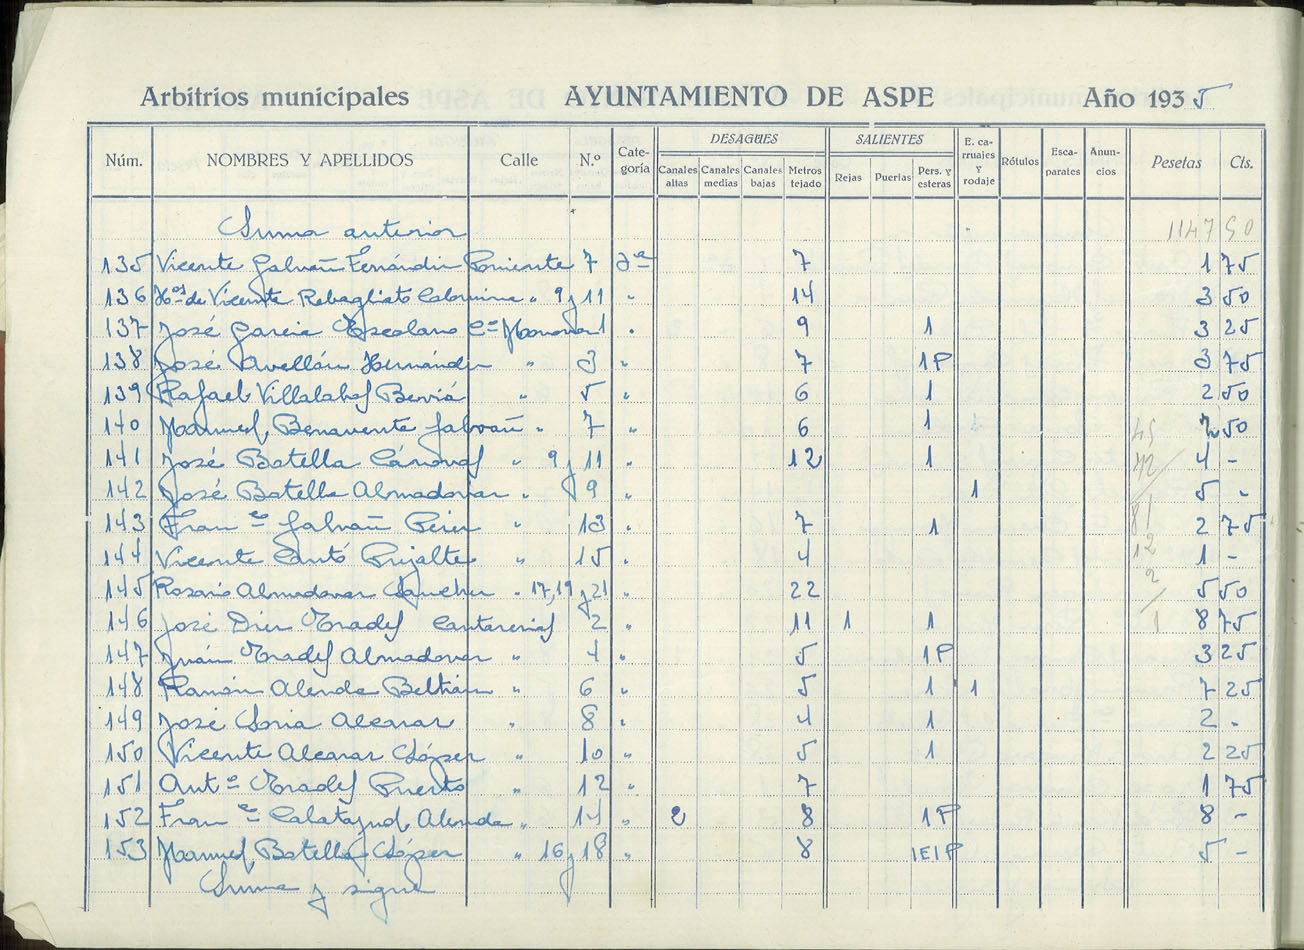 Arbitrios municipales AYUNTAMIENTO DE ASPE Año 1935
Núm. NOMBRES Y APELLIDOS Calle N.º Cate-goría DESAGÜES Canales altas Canales medias Canales bajas Metros tejado SALIENTES Rejas Puertas Pers. y esteras E. ca-rruajes y rodaje Rótulos Esca-parates Anun-cios Pesetas Cts.
Suma anterior 1147 50
135 Vicente Galvañ Fernández Poniente 7 3ª 7 1 75
136 Hºs de Vicente Rebagliato Colomina " 9 y 11 " 14 3 50
137 José García Escolano Cº Monovar 1 " 9 1 3 25
138 José Avellán Hernández " 3 " 7 1P 3 75
139 Rafael Villalobos Berviá " 5 " 6 1 2 50
140 Manuel Benavente Galvañ " 7 " 6 1 2 50
141 José Botella Cánovas " 9 y 11 " 12 1 4 -
142 José Botella Almodovar " 9 " 1 5 "
143 Franco Galvañ Pérez " 13 " 7 1 2 75
144 Vicente Cantó Prijalte " 15 " 4 1 -
145 Rosario Almodovar Sanchez " 17, 19 y 21 " 22 5 50
146 José Diez Prades Cantarerias 2 " 11 1 1 8 75
147 Juán Prades Almodovar " 4 " 5 1P 3 25
148 Ramón Alenda Beltrán " 6 " 5 1 1 7 25
149 José Soria Alcaraz " 8 " 4 1 2 "
150 Vicente Alcaraz López " 10 " 5 1 2 25
151 Antº Prades Puerto " 12 " 7 1 75
152 Franco Calatayud Alenda " 14 " 2 8 1P 8 -
153 Manuel Botella López " 16 y 18 " 8 1E1P 5 -
Suma y sigue